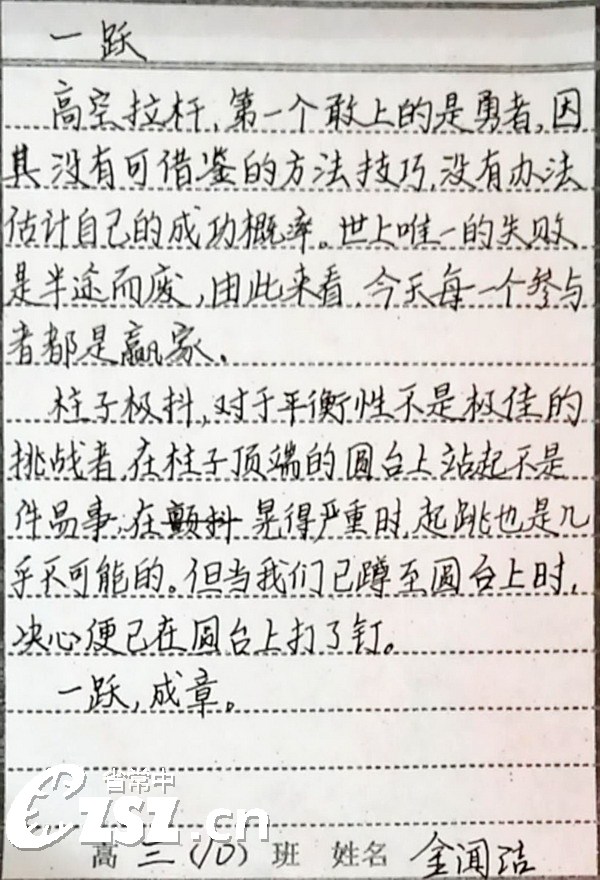 一跃
高空拉杆,第一个敢上的是勇者,因
其没有可借鉴的方法技巧,没有办法
估计自己的成功概率。世上唯一的失败
是半途而废,由此来看,今天每一个参与
者都是赢家、
柱子极抖,对于平衡性不是极佳的
挑战者,在柱子顶端的圆台上站起不是
件易事,在颤抖晃得严重时,起跳也是几
乎不可能的。但当我们已蹲至圆台上时,
决心便已在圆台上打了钉。
一跃,成章。
省常中
CZSZ.cn
高三(10)班 姓名 金闻洁